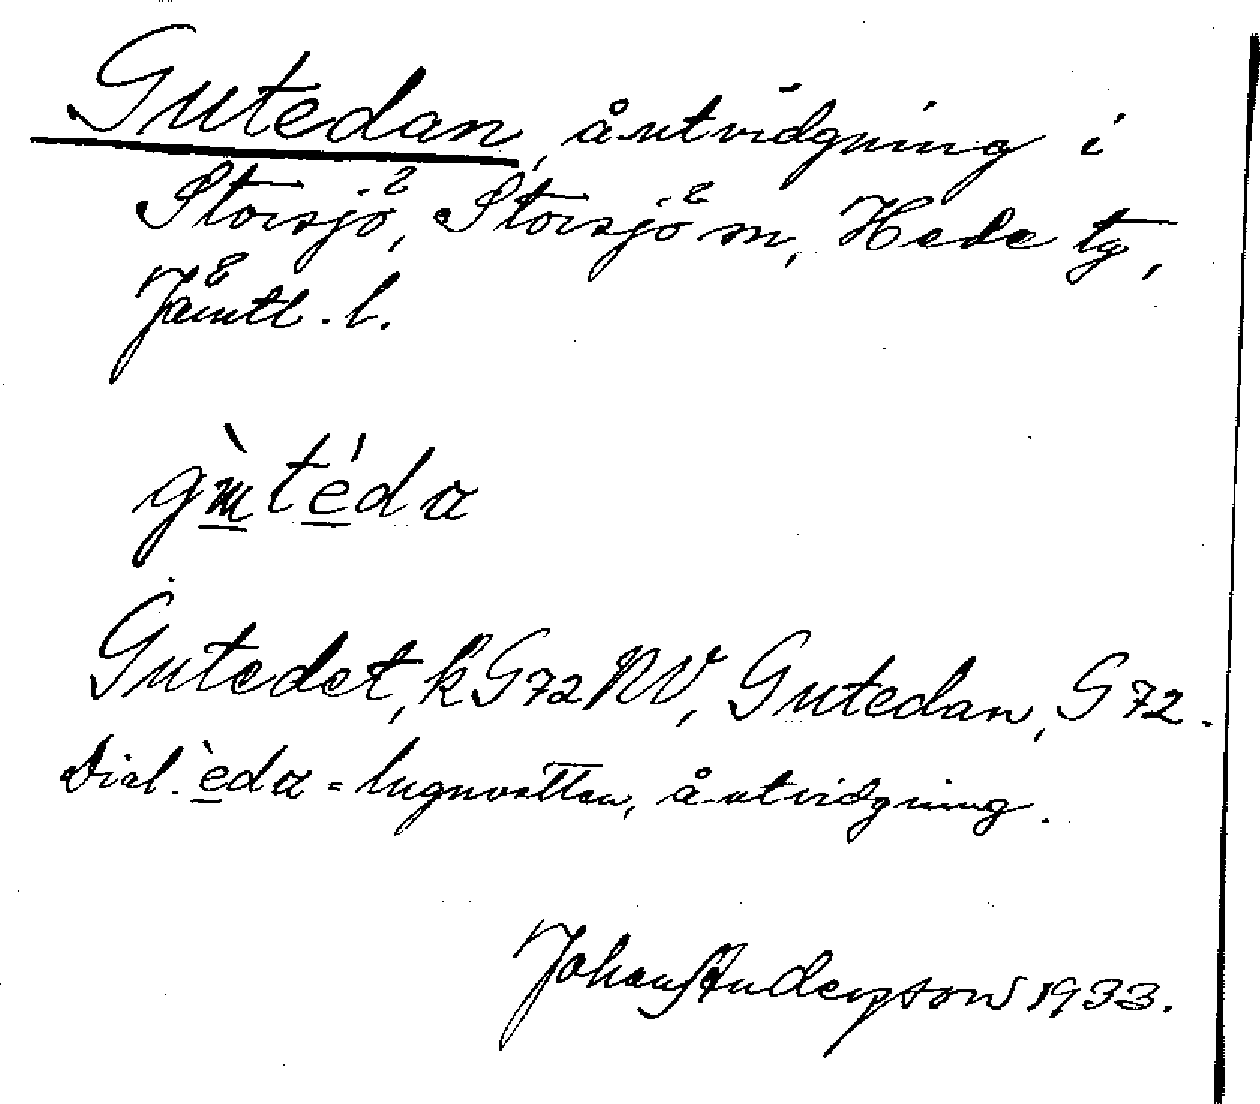 Gutedan, åutvidgning i
Storsjö, Storsjö sn, Hede tg,
Jämtl. l.
gù̲té̲da
Gutedet, kG72NV, Gutedan, G72.
Dial. è̲da = lugnvatten, åutvidgning.
Johan Anderson 1933.